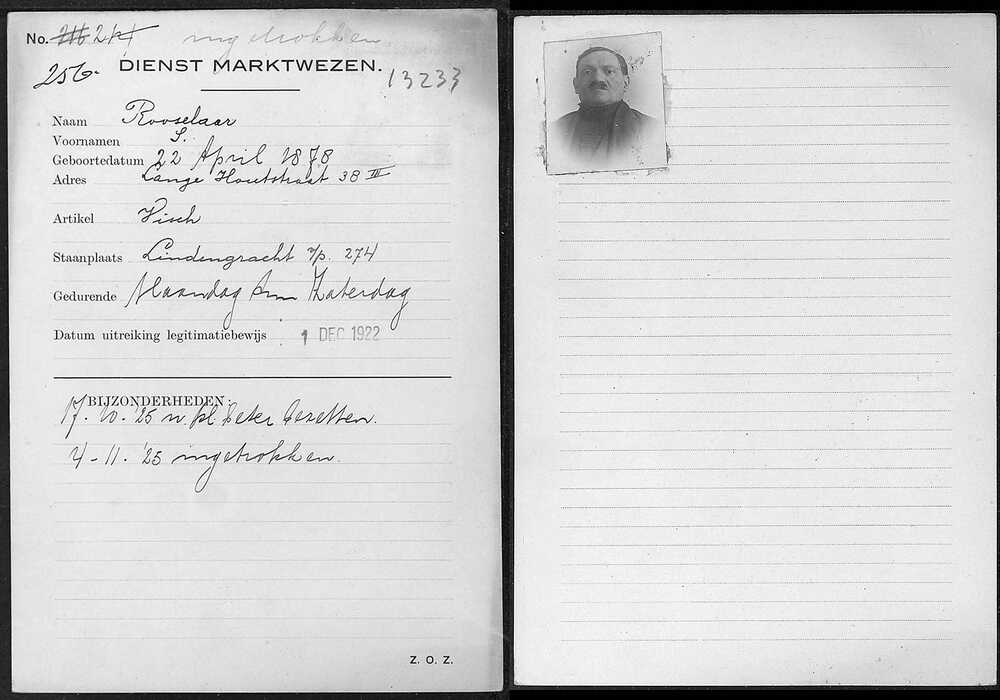 No. 216 214 ingetrokken
256. DIENST MARKTWEZEN. 13233
Naam Rooselaar
Voornamen S.
Geboortedatum 22 April 1878
Adres Lange Houtstraat 38 III
Artikel Visch
Staanplaats Lindengracht v/p. 274
Gedurende Maandag t/m Zaterdag
Datum uitreiking legitimatiebewijs 1 DEC 1922
BIJZONDERHEDEN:
17-10-'25 n. pl. beter bezetten.
4-11-'25 ingetrokken.
Z. O. Z.